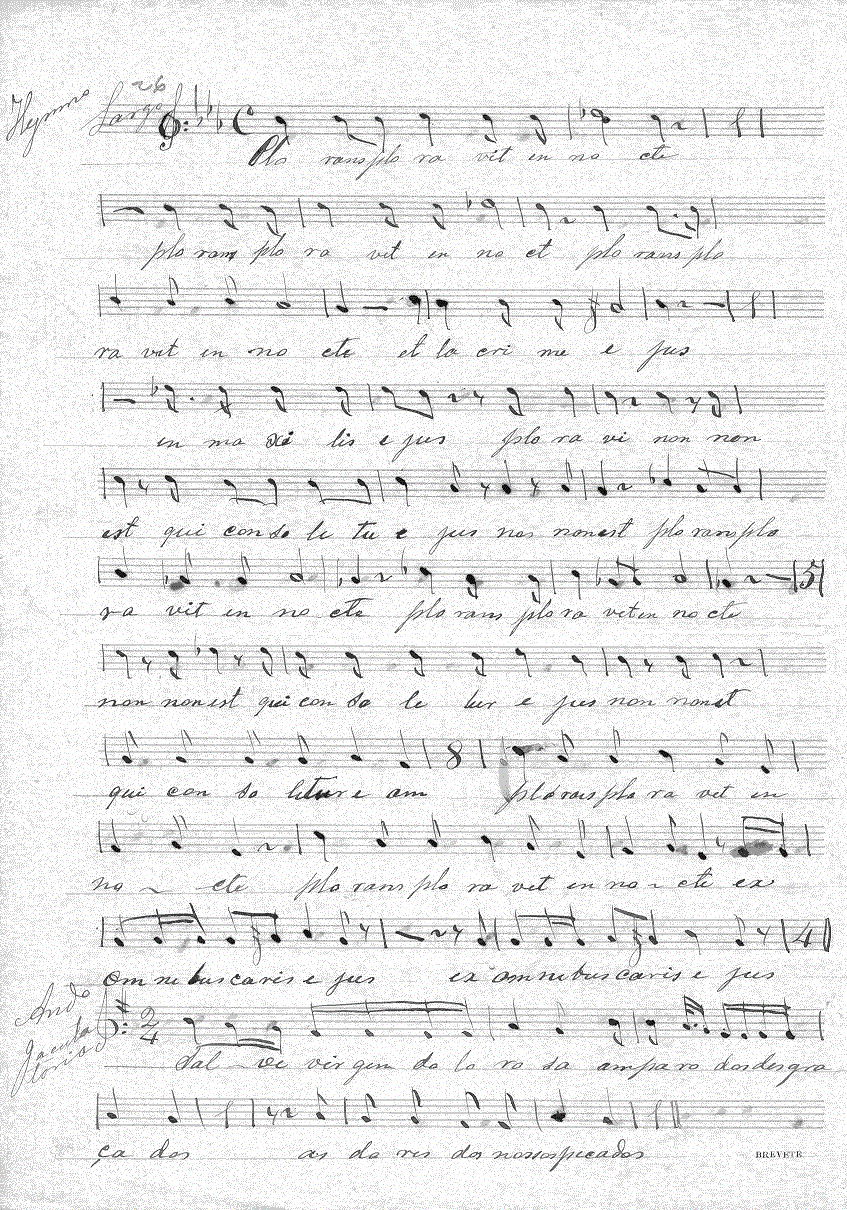 26
Hymno Largo
Plo rans plo ra vit in no cte
plo rans plo ra vit in no ct plo rans plo
ra vit in no cte et la cri me e jus
in ma xi lis e jus plo ra vi non non
est qui con so le tu e jus non nonest plo rans plo
ra vit in no cte plo rans plo ra vit in no cte 5
non non est qui con so le tur e jus non nonest
qui con so letur e om 8 plo rans plo ra vit in
no ~ cte plo rans plo ra vit in no ~ cte ex
om ni bus caris e jus ex om nibus caris e jus 4
And.º
Jacula toria
2/4
Sal ve virgem do lo ro sa amparo dos desgra
ça dos as do res dos nossos pecados
BREVETE